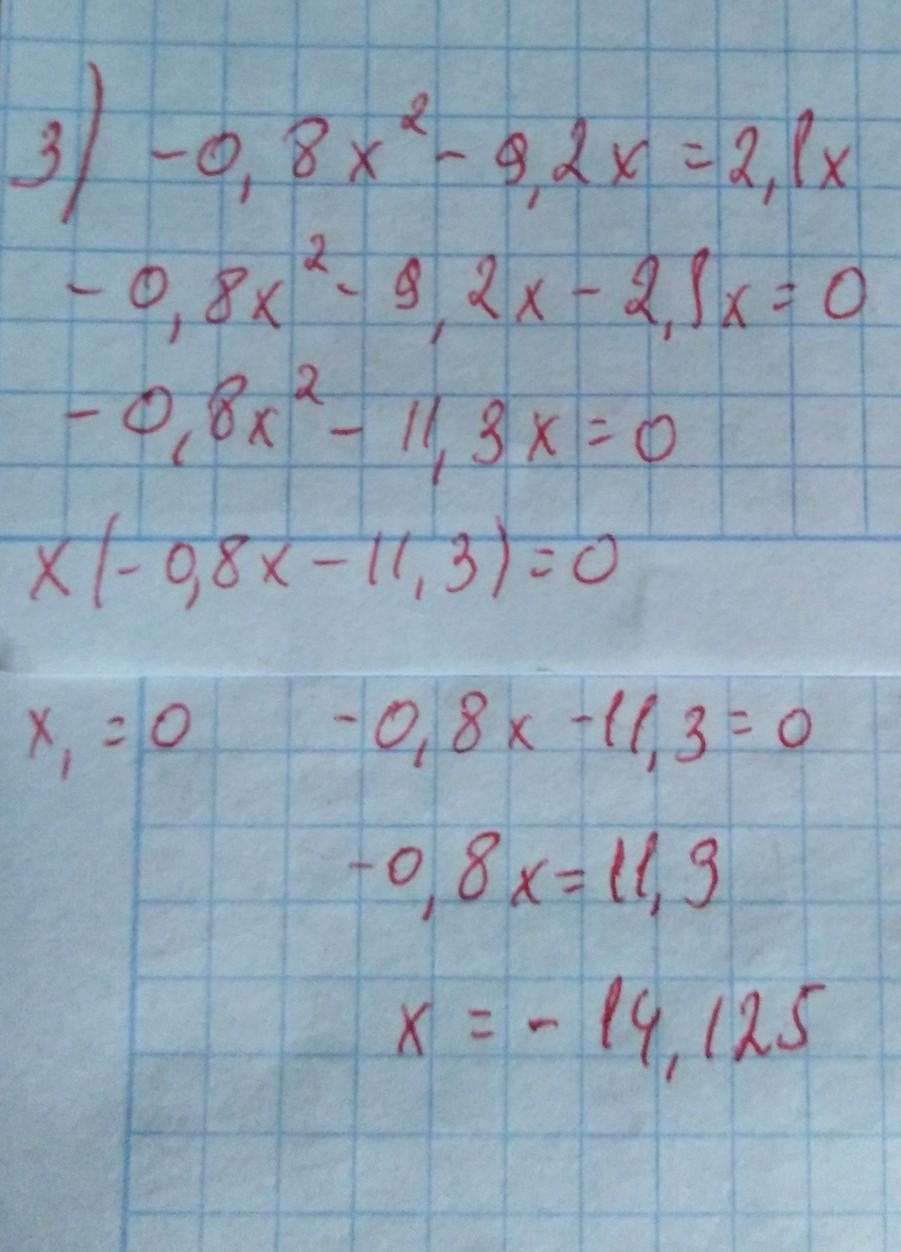 3) -0,8x² - 9,2x = 2,1x
-0,8x² - 9,2x - 2,1x = 0
-0,8x² - 11,3x = 0
x(-0,8x - 11,3) = 0
x₁ = 0 -0,8x - 11,3 = 0
-0,8x = 11,3
x = - 14,125